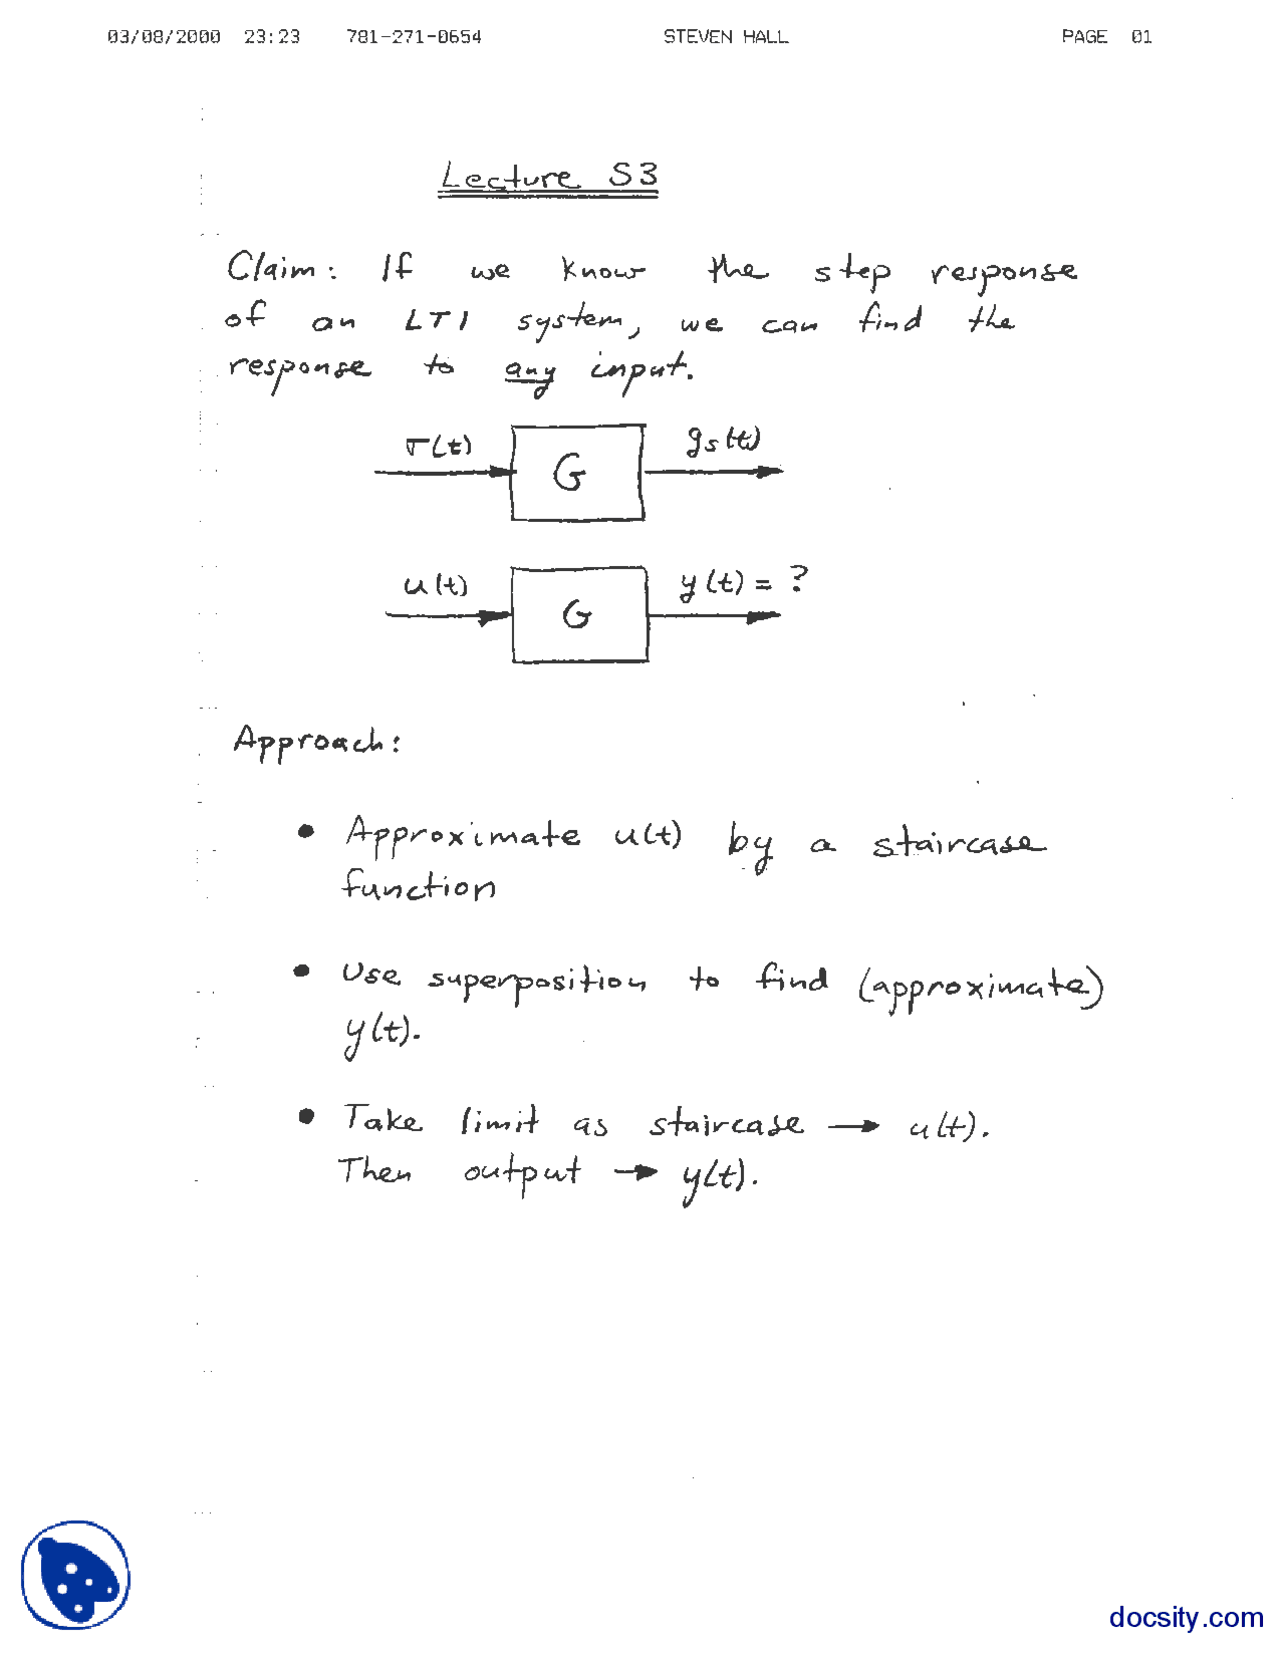 03/08/2000 23:23 781-271-0654 STEVEN HALL PAGE 01
Lecture S3
Claim: If we know the step response
of an LTI system, we can find the
response to any input.
σ(t) G gs(t)
u(t) G y(t) = ?
Approach:
• Approximate u(t) by a staircase
function
• Use superposition to find (approximate)
y(t).
• Take limit as staircase → u(t).
Then output → y(t).
docsity.com